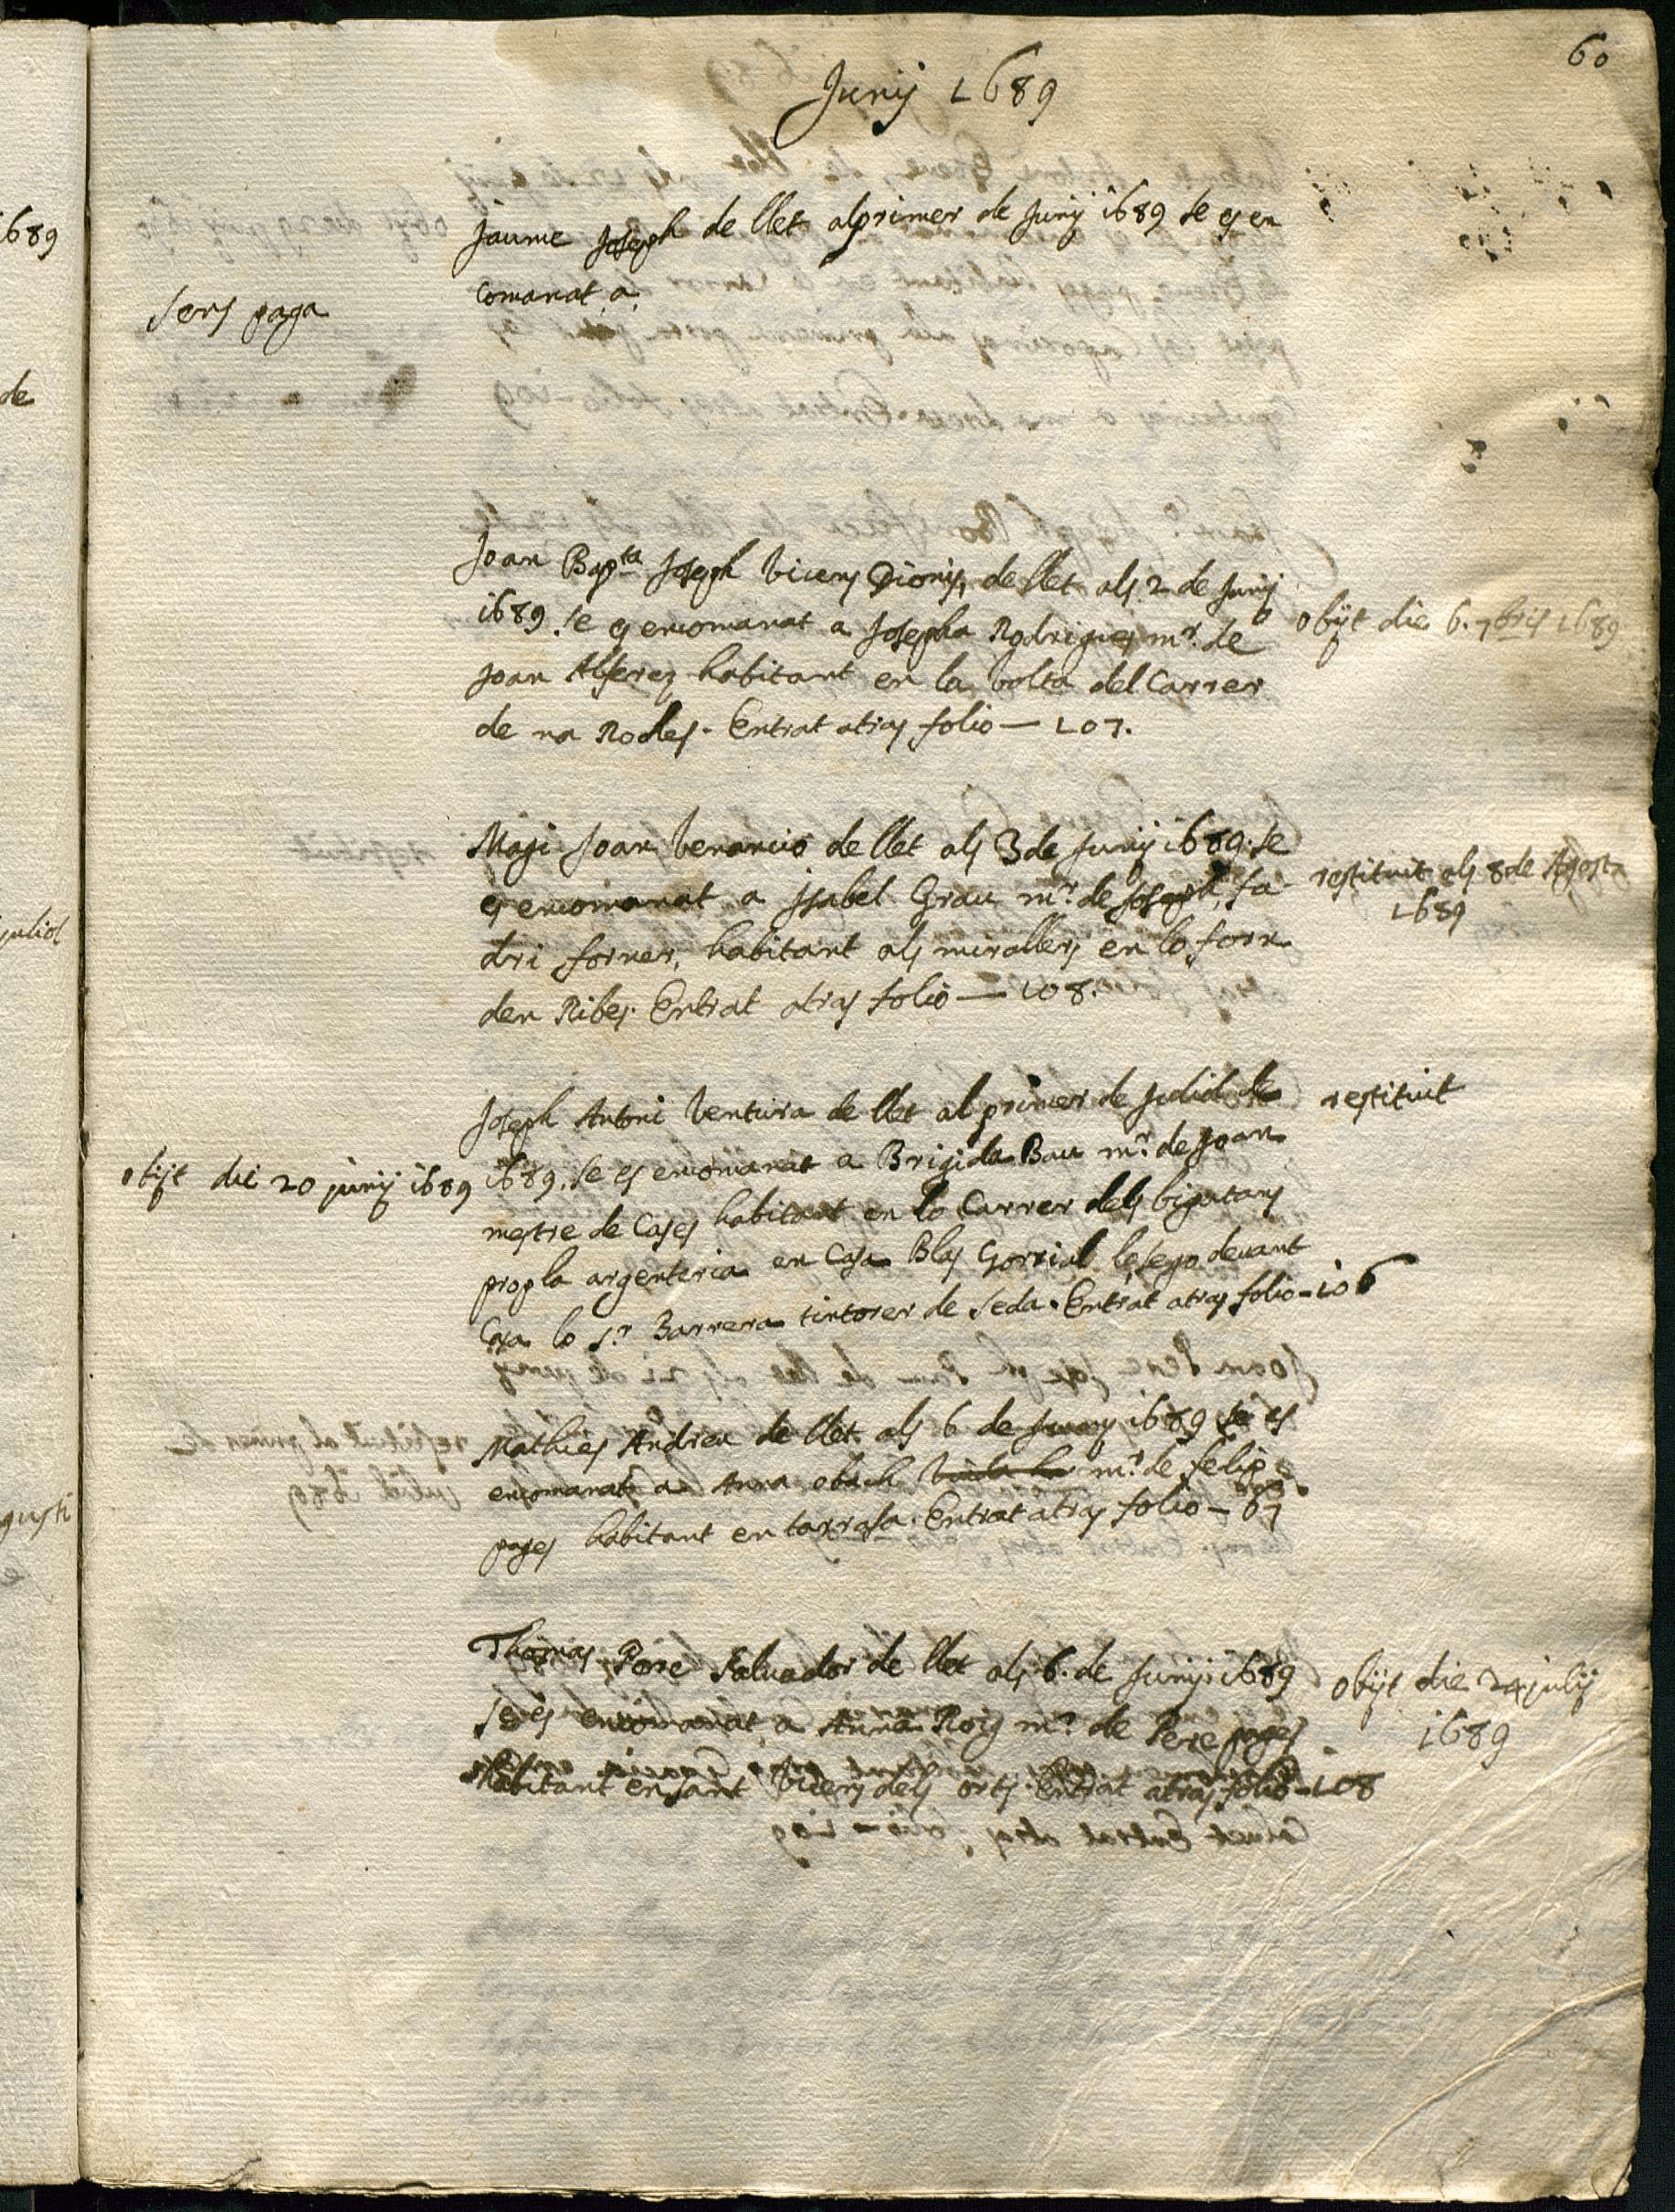 60
Junij 1689
Jaume Joseph de llet al primer de Junij 1689 se es en
comanat a
sens paga
Joan Bapta Joseph Vicens Dionis, de llet als 2 de Junij
1689. se es encomanat a Josepha Rodrigues mr. de
Joan Alferez habitant en la volta del Carrer
de na Rodes. Entrat atras folio — 107.
obijt die 6. 7bris 1689
Magi Joan Venancio de llet als 3 de Junij 1689. se
es encomanat a Isabel Grau mr. de Joseph, fa
dri forner, habitant als mirallers en lo forn
den Ribes. Entrat atras folio — 108.
restituit als 8 de Agost
1689
Joseph Antoni Ventura de llet al primer de Juliol de
1689. se es encomanat a Brigida Bau mr. de Joan
mestre de Cases habitant en lo Carrer dels bigatans
prop la argenteria en Casa Blas devant
Casa lo Sr. Barrera tintorer de seda. Entrat atras folio - 106
restituit
obijt die 20 junij 1689
Mathies Andreu de llet als 6 de Juny 1689 se es
encomanat a Anna mr. de felip
pages habitant en tarrasa. Entrat atras folio — 67
Thomas Pere Salvador de llet als 6. de Junij 1689
se es encomanat a Anna Roig mr. de Pere pages
habitant en sant Vicens dels orts. Entrat atras folio - 108
obijt die 24 julij
1689
1689
de
juliol